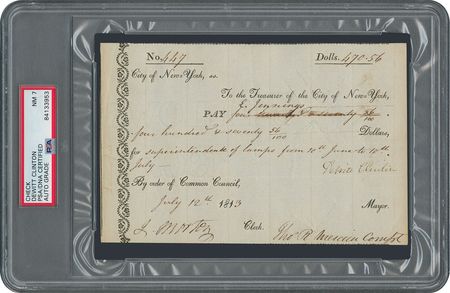 NM 7
84133953
CHECK
DEWITT CLINTON
PSA/DNA CERTIFIED
AUTO GRADE
PSA
No. 447 Dolls. 470-56
City of New-York, ss.
To the Treasurer of the City of New-York,
PAY E. Jennings
four hundred & seventy 56/100 Dollars,
for superintendence of lamps from 10th June to 10th
July Dewitt Clinton
By order of Common Council, Mayor.
July 12th 1813
Clerk. Thos. R. Mercein Compt